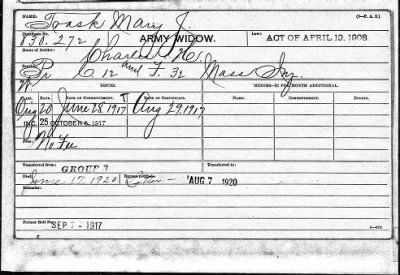 NAME: Trask Mary J. (3—P. A. G.)
Certificate No. 830.272 ARMY WIDOW. Law: ACT OF APRIL 19, 1908.
Name of Soldier: Charles H.
Service: Pr C 12 and F. 32 Mass Inf.
ISSUES. MINORS—$2 PER MONTH ADDITIONAL.
RATE. DATE OF COMMENCEMENT. DATE OF CERTIFICATE. NAME. COMMENCEMENT. ISSUED.
20 June 28, 1917 Aug 29, 1917
INC. 25 OCTOBER 6, 1917
No Fee
Transferred from: GROUP 3 Transferred to:
Died June 17, 1920 AUG 7 1920
Remarks:
Former Roll No. SEP 7 - 1917